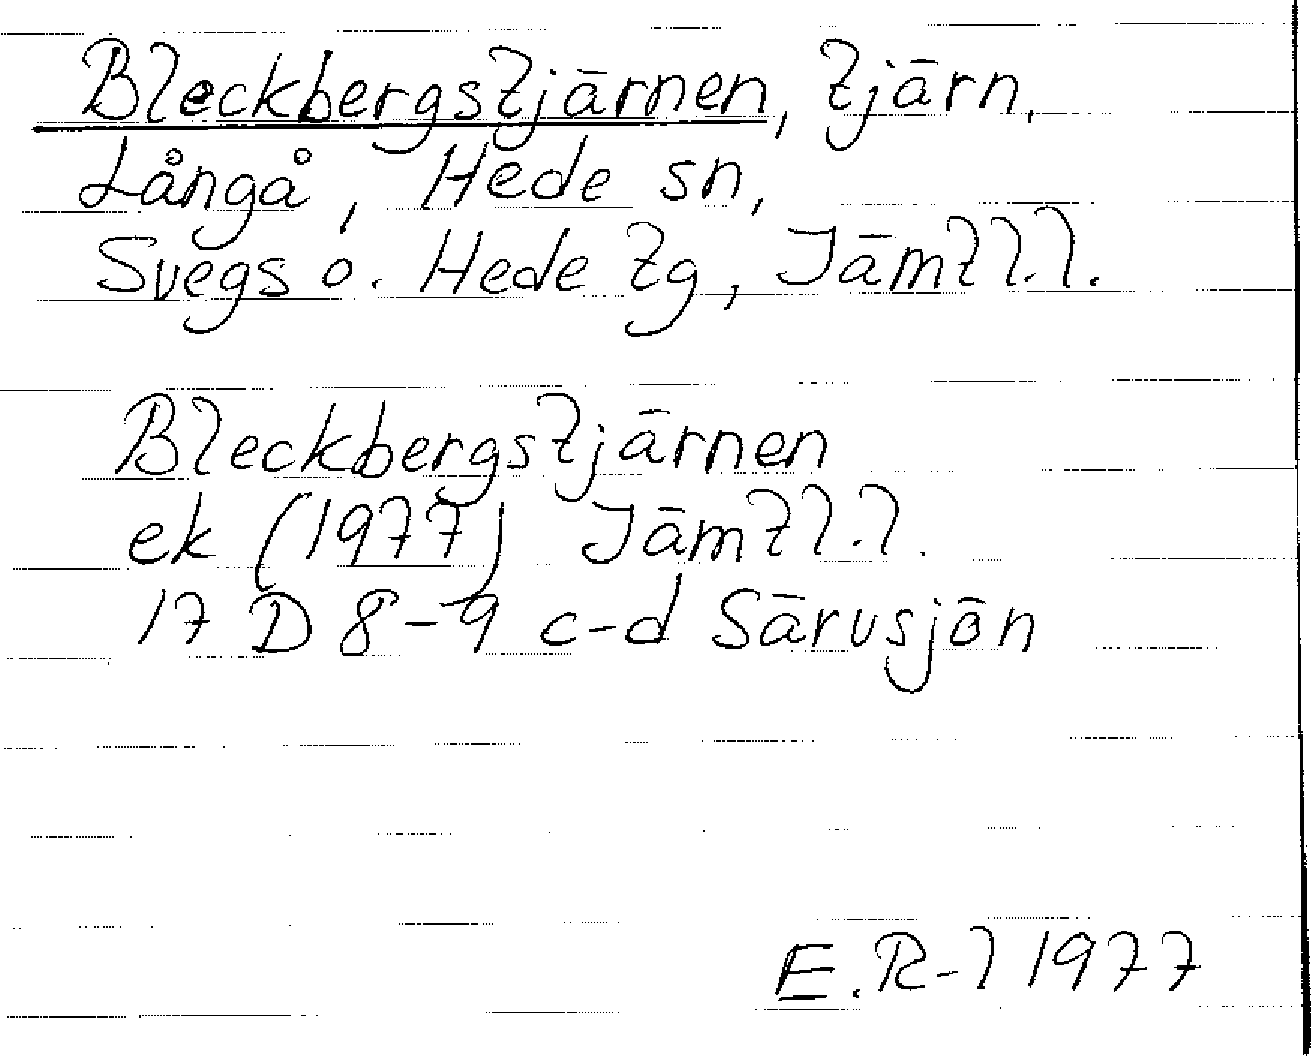 Bleckbergstjärnen, tjärn,
Långå, Hede sn,
Svegs o. Hede tg, Jämtl.l.
Bleckbergstjärnen
ek (1977) Jämtl.l.
17 D 8-9 c-d Särusjön
E.R-l 1977